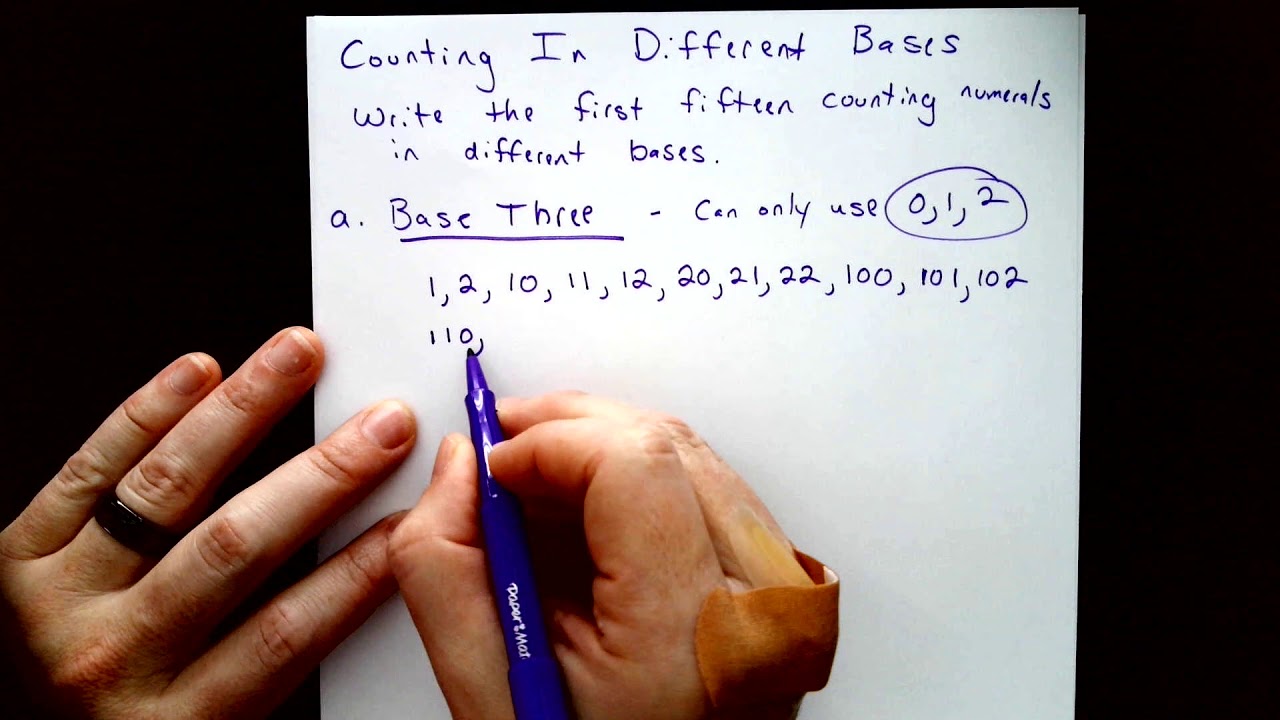 Counting In Different Bases
Write the first fifteen counting numerals
in different bases.
a. Base Three - Can only use 0,1,2
1, 2, 10, 11, 12, 20, 21, 22, 100, 101, 102
110,
paper:Mat